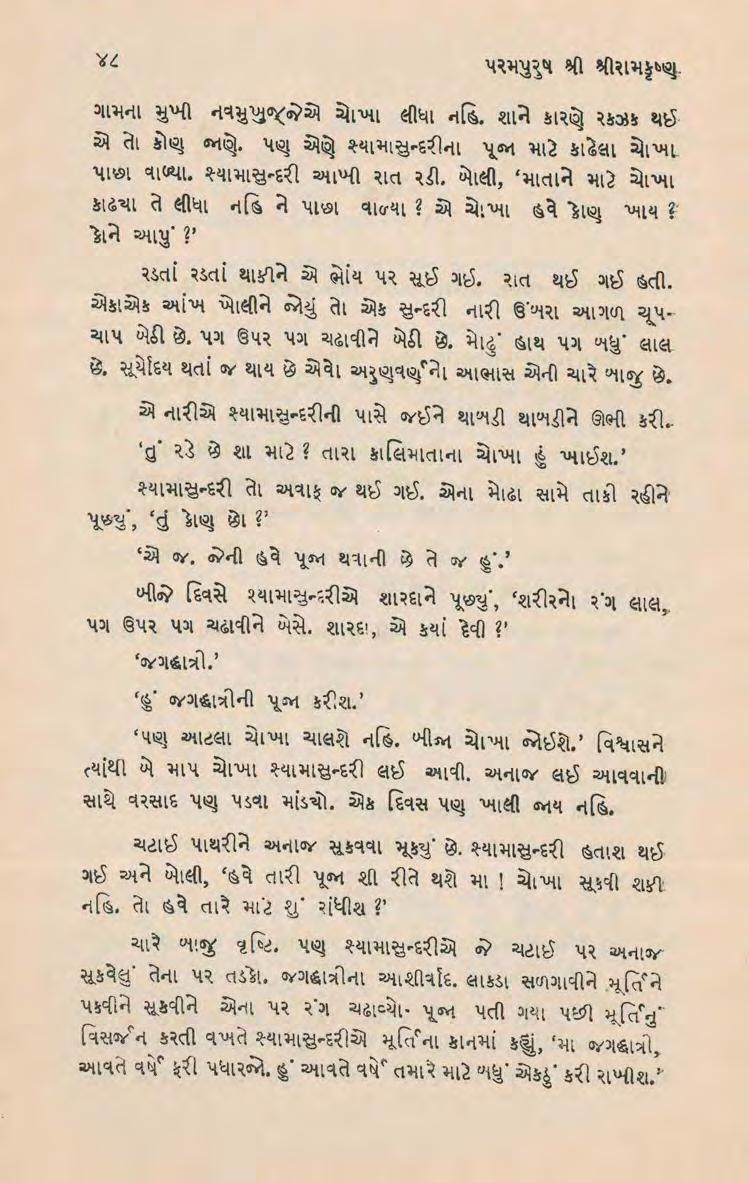 ૪૮
પરમપુરુષ શ્રી શ્રીરામકૃષ્ણ
ગામના મુખી નવમુખુજ્જેએ ચોખા લીધા નહિ. શાને કારણે રકઝક થઈ
એ તો કોણ જાણે. પણ એણે શ્યામાસુન્દરીના પૂજા માટે કાઢેલા ચોખા
પાછા વાળ્યા. શ્યામાસુન્દરી આખી રાત રડી. બોલી, ‘માતાને માટે ચોખા
કાઢયા તે લીધા નહિ ને પાછા વાળ્યા ? એ ચોખા હવે કોણ ખાય ?
કોને આપું ?’
રડતાં રડતાં થાકીને એ ભોંય પર સૂઈ ગઈ. રાત થઈ ગઈ હતી.
એકાએક આંખ ખોલીને જોયું તો એક સુન્દરી નારી ઉંબરા આગળ ચૂપ-
ચાપ બેઠી છે. પગ ઉપર પગ ચઢાવીને બેઠી છે. મોઢું હાથ પગ બધું લાલ
છે. સૂર્યોદય થતાં જ થાય છે એવો અરુણવર્ણનો આભાસ એની ચારે બાજુ છે.
એ નારીએ શ્યામાસુન્દરીની પાસે જઈને થાબડી થાબડીને ઊભી કરી.
‘તું રડે છે શા માટે ? તારા કાલિમાતાના ચોખા હું ખાઈશ.’
શ્યામાસુન્દરી તો અવાક્ જ થઈ ગઈ. એના મોઢા સામે તાકી રહીને
પૂછ્યું, ‘તું કોણ છો ?’
‘એ જ. જેની હવે પૂજા થવાની છે તે જ હું.’
બીજે દિવસે શ્યામાસુન્દરીએ શારદાને પૂછ્યું, ‘શરીરનો રંગ લાલ,
પગ ઉપર પગ ચઢાવીને બેસે. શારદા, એ કયાં દેવી ?’
‘જગદ્ધાત્રી.’
‘હું જગદ્ધાત્રીની પૂજા કરીશ.’
‘પણ આટલા ચોખા ચાલશે નહિ. બીજા ચોખા જોઈશે.’ વિશ્વાસને
ત્યાંથી બે માપ ચોખા શ્યામાસુન્દરી લઈ આવી. અનાજ લઈ આવવાની
સાથે વરસાદ પણ પડવા માંડયો. એક દિવસ પણ ખાલી જાય નહિ.
ચટાઈ પાથરીને અનાજ સૂકવવા મૂક્યું છે. શ્યામાસુન્દરી હતાશ થઈ
ગઈ અને બોલી, ‘હવે તારી પૂજા શી રીતે થશે મા ! ચોખા સૂકવી શકી
નહિ. તો હવે તારે માટે શું રાંધીશ ?’
ચારે બાજુ વૃષ્ટિ. પણ શ્યામાસુન્દરીએ જે ચટાઈ પર અનાજ
સૂકવેલું તેના પર તડકો. જગદ્ધાત્રીના આશીર્વાદ. લાકડા સળગાવીને મૂર્તિને
પકવીને સૂકવીને એના પર રંગ ચઢાવ્યો. પૂજા પતી ગયા પછી મૂર્તિનું
વિસર્જન કરતી વખતે શ્યામાસુન્દરીએ મૂર્તિના કાનમાં કહ્યું, ‘મા જગદ્ધાત્રી,
આવતે વર્ષે ફરી પધારજો. હું આવતે વર્ષે તમારે માટે બધું એકઠું કરી રાખીશ.’